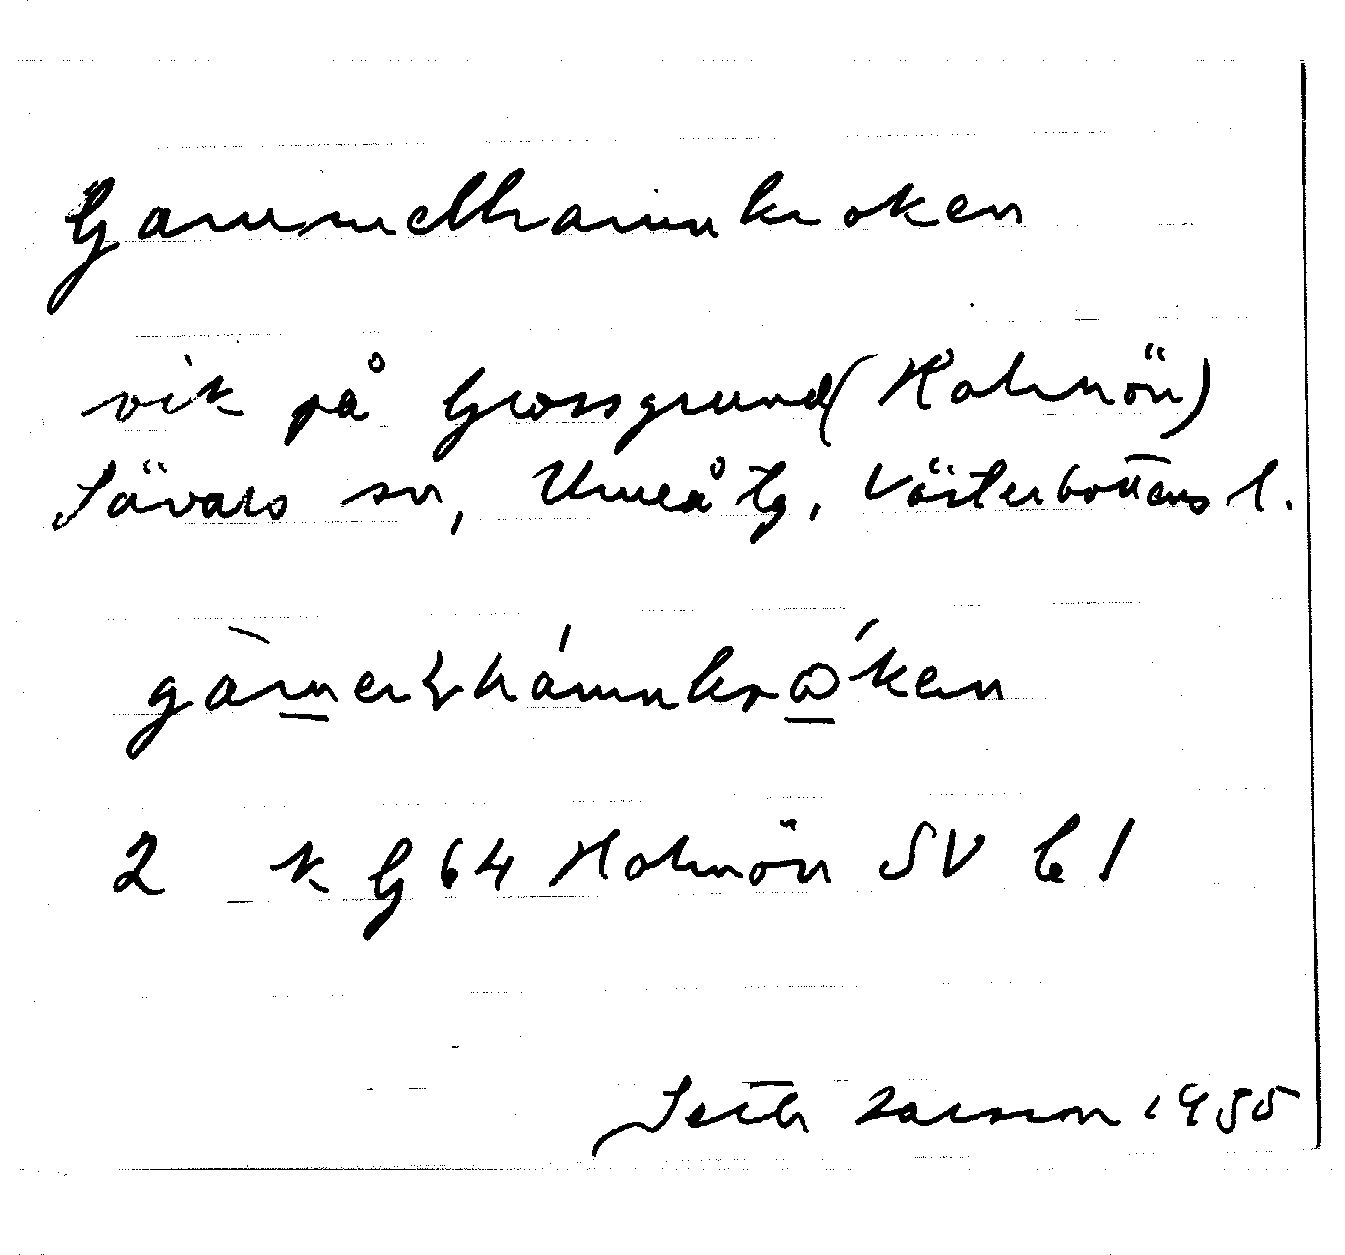 Gammelhamnkroken
vik på Grossgrund (Holmön)
Sävars sn, Umeå tg, Västerbottens l.
2 k G 64 Holmön SV b 1
Seth Larsson 1955